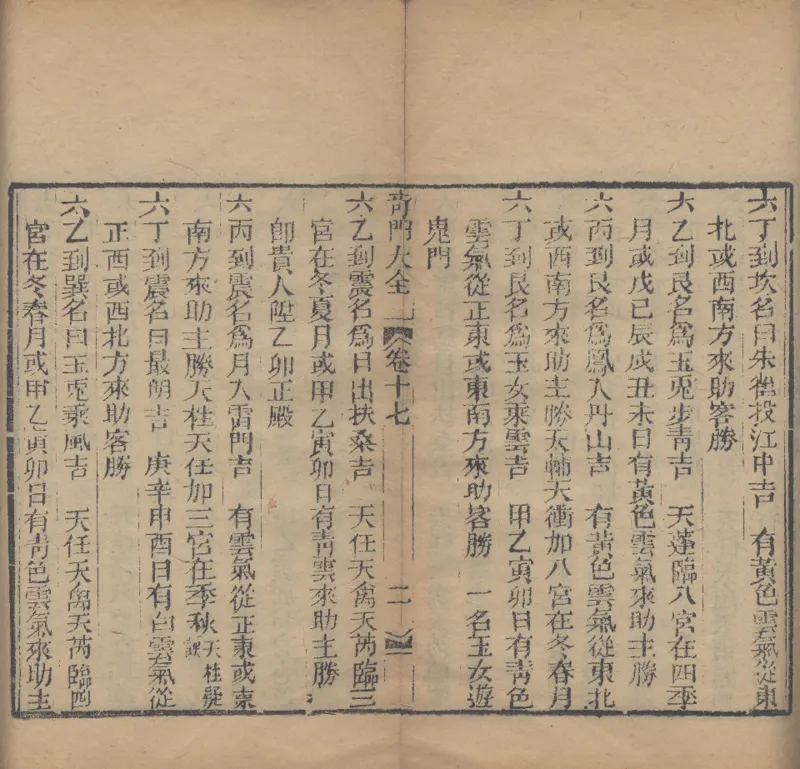 六丁到坎名曰朱雀投江中吉　有黃色雲氣從東
北或西南方來助客勝
六乙到艮名爲玉兎步靑吉　天蓬臨八宮在四季
月或戊己辰戌丑未日有黃色雲氣來助主勝
六丙到艮名爲鳳入丹山吉　有黃色雲氣從東北
或西南方來助主勝天輔天衝加八宮在冬春月
六丁到艮名爲玉女乘雲吉　甲乙寅卯日有靑色
雲氣從正東或東南方來助客勝　一名玉女遊
鬼門
奇門大全　卷十七　二
六乙到震名爲日出扶桑吉　天任天禽天芮臨三
宮在冬夏月或甲乙寅卯日有靑雲來助主勝
卽貴人陞乙卯正殿
六丙到震名爲月入雷門吉　有雲氣從正東或東
南方來助主勝天柱天任加三宮在季秋天柱疑誤
六丁到震名曰最朗吉　庚辛申酉日有白雲氣從
正西或西北方來助客勝
六乙到巽名曰玉兎乘風吉　天任天禽天芮臨四
宮在冬春月或甲乙寅卯日有靑色雲氣來助主